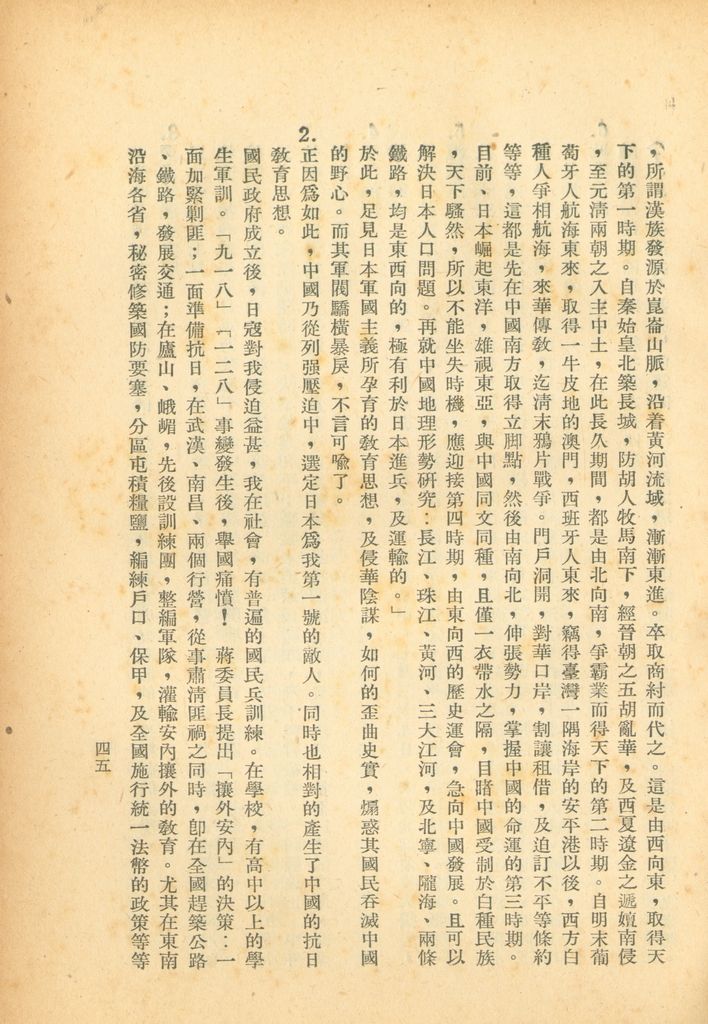 ，所謂漢族發源於崑崙山脈，沿着黃河流域，漸漸東進。卒取商紂而代之。這是由西向東，取得天
下的第一時期。自秦始皇北築長城，防胡人牧馬南下，經晉朝之五胡亂華，及西夏遼金之遞嬗南侵
，至元淸兩朝之入主中土，在此長久期間，都是由北向南，爭霸業而得天下的第二時期。自明末葡
萄牙人航海東來，取得一牛皮地的澳門，西班牙人東來，竊得臺灣一隅海岸的安平港以後，西方白
種人爭相航海，來華傳敎，迄淸末鴉片戰爭。門戶洞開，對華口岸，割讓租借，及迫訂不平等條約
等等，這都是先在中國南方取得立脚點，然後由南向北，伸張勢力，掌握中國的命運的第三時期。
目前、日本崛起東洋，雄視東亞，與中國同文同種，且僅一衣帶水之隔，目睹中國受制於白種民族
，天下騷然，所以不能坐失時機，應迎接第四時期，由東向西的歷史運會，急向中國發展。且可以
解決日本人口問題。再就中國地理形勢硏究：長江、珠江、黃河、三大江河，及北寧、隴海、兩條
鐵路，均是東西向的，極有利於日本進兵，及運輸的。」
於此，足見日本軍國主義所孕育的敎育思想，及侵華陰謀，如何的歪曲史實，煽惑其國民吞滅中國
的野心。而其軍閥驕橫暴戾，不言可喩了。
2.正因爲如此，中國乃從列强壓迫中，選定日本爲我第一號的敵人。同時也相對的產生了中國的抗日
敎育思想。
國民政府成立後，日寇對我侵迫益甚，我在社會，有普遍的國民兵訓練。在學校，有高中以上的學
生軍訓。「九一八」「一二八」事變發生後，舉國痛憤！ 蔣委員長提出「攘外安內」的決策：一
面加緊剿匪；一面準備抗日，在武漢、南昌、兩個行營，從事肅淸匪禍之同時，卽在全國趕築公路
、鐵路，發展交通；在廬山、峨嵋，先後設訓練團，整編軍隊，灌輸安內攘外的敎育。尤其在東南
沿海各省，秘密修築國防要塞，分區屯積糧鹽，編練戶口、保甲，及全國施行統一法幣的政策等等
四五